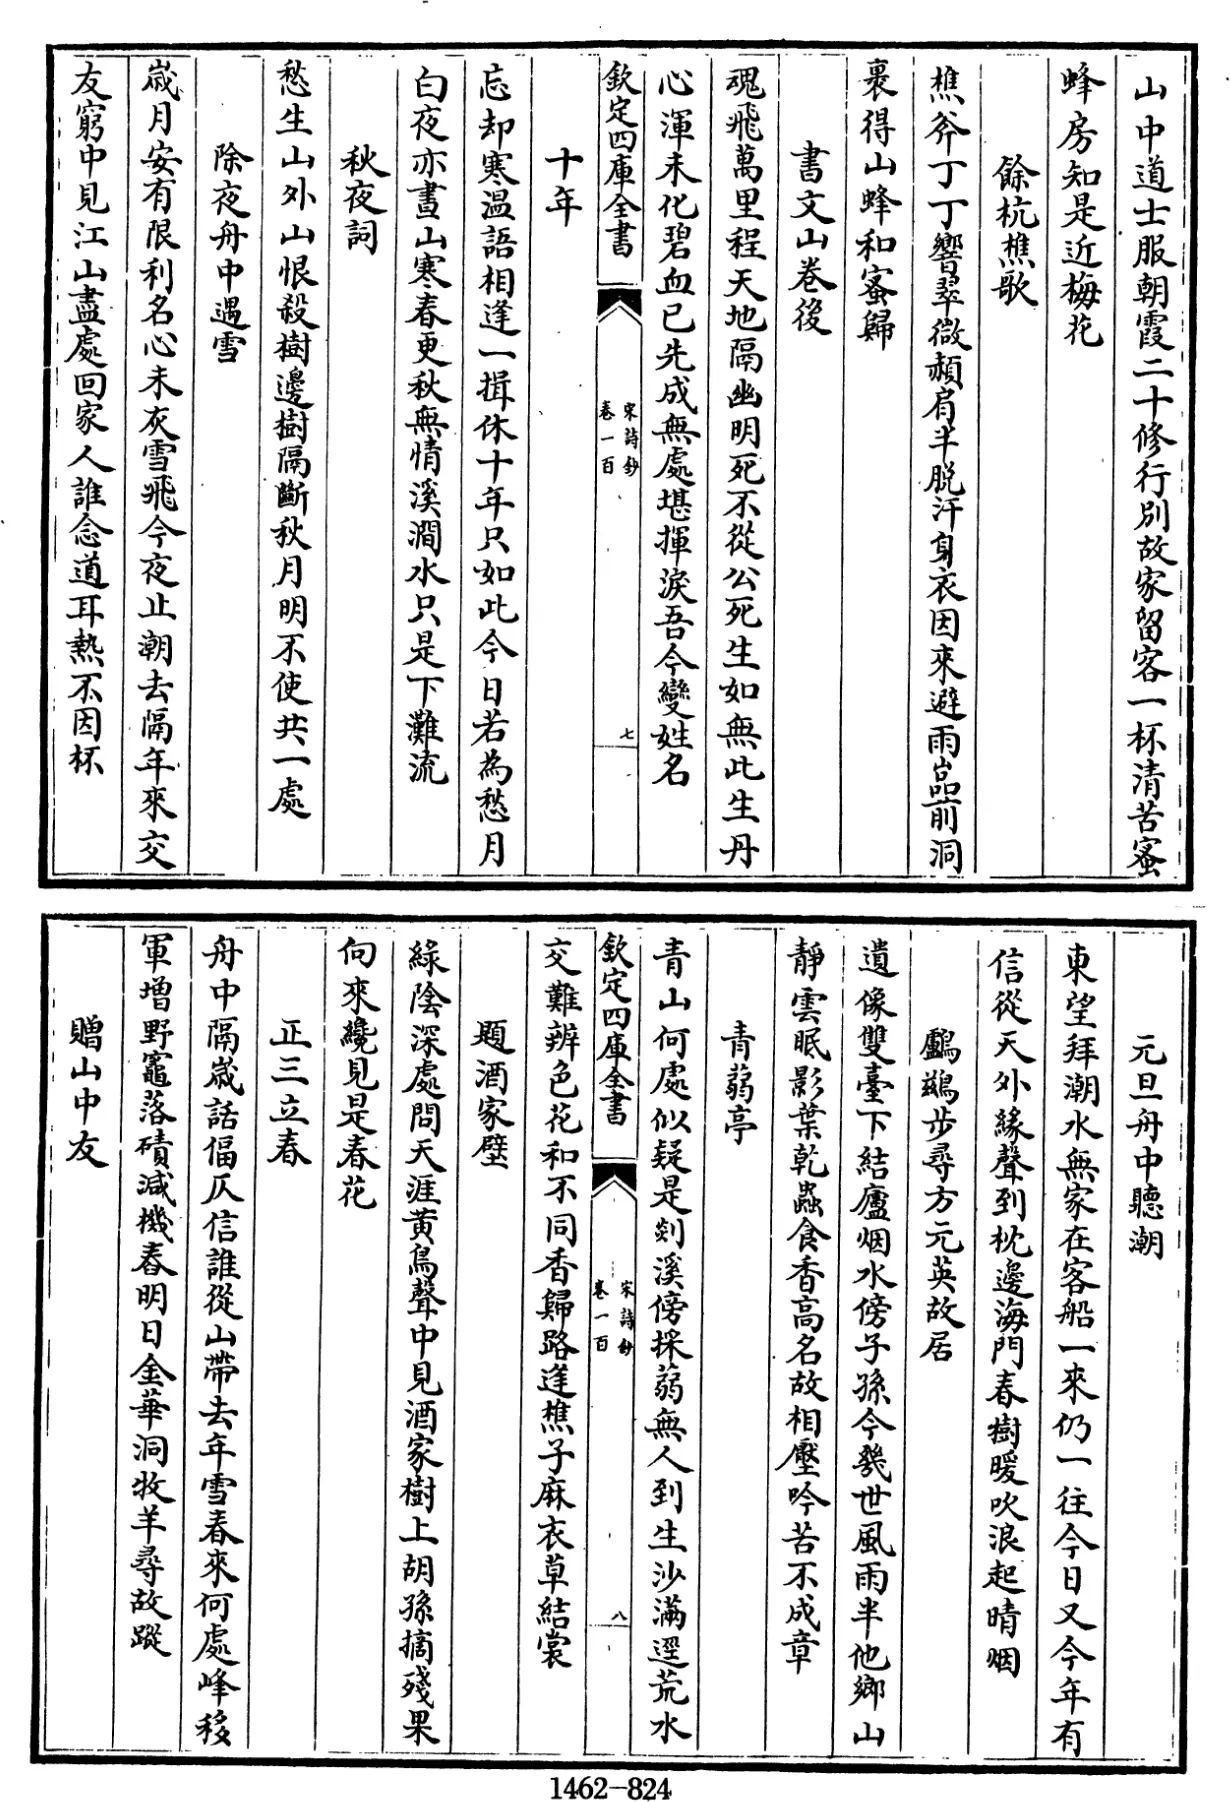 山中道士服朝霞二十修行別故家留客一杯清苦蜜
蜂房知是近梅花
餘杭樵歌
樵斧丁丁響翠微頳肩半脱汗身衣因來避雨嵓前洞
裹得山蜂和蜜歸
書文山卷後
魂飛萬里程天地隔幽明死不從公死生如無此生丹
心渾未化碧血已先成無處堪揮淚吾今變姓名
欽定四庫全書
宋詩鈔
卷一百
七
十年
忘却寒温語相逢一揖休十年只如此今日若為愁月
白夜亦晝山寒春更秋無情溪澗水只是下灘流
秋夜詞
愁生山外山恨殺樹邊樹隔斷秋月明不使共一處
除夜舟中遇雪
嵗月安有限利名心未灰雪飛今夜止潮去隔年來交
友窮中見江山盡處回家人誰念道耳熱不因杯
元旦舟中聽潮
東望拜潮水無家在客船一來仍一往今日又今年有
信從天外緣聲到枕邊海門春樹暖吹浪起晴烟
鸕鷀步尋方元英故居
遺像雙臺下結廬烟水傍子孫今幾世風雨半他鄉山
靜雲眠影葉乾蟲食香高名故相壓吟苦不成章
青蒻亭
青山何處似疑是剡溪傍採蒻無人到生沙滿逕荒水
欽定四庫全書
宋詩鈔
卷一百
八
交難辨色花和不同香歸路逢樵子麻衣草結裳
題酒家壁
綠陰深處問天涯黄鳥聲中見酒家樹上胡孫摘殘果
向來纔見是春花
正三立春
舟中隔嵗話偪仄信誰從山帶去年雪春來何處峰移
軍增野竈落磧減機舂明日金華洞牧羊尋故蹤
贈山中友
1462—824